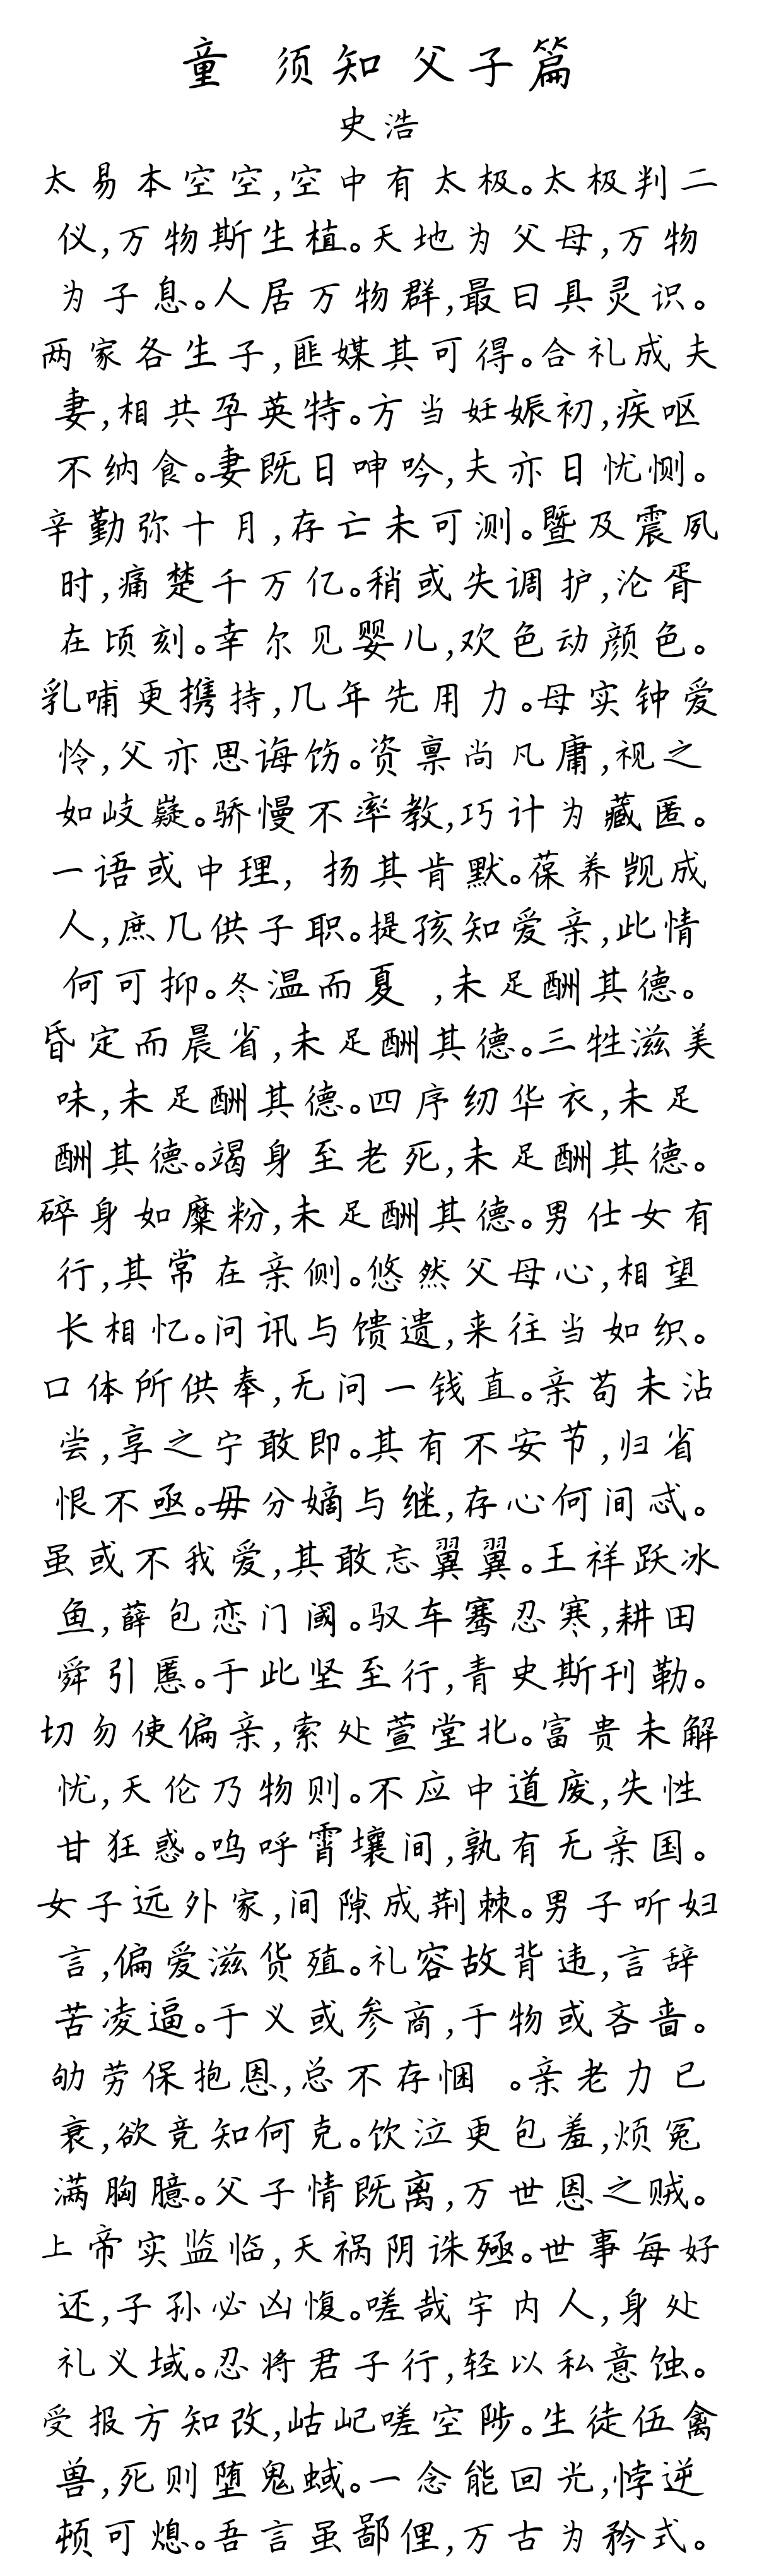 童 须知父子篇
史浩
太易本空空,空中有太极。太极判二
仪,万物斯生植。天地为父母,万物
为子息。人居万物群,最曰具灵识。
两家各生子,匪媒其可得。合礼成夫
妻,相共孕英特。方当妊娠初,疾呕
不纳食。妻既日呻吟,夫亦日忧恻。
辛勤弥十月,存亡未可测。暨及震夙
时,痛楚千万亿。稍或失调护,沦胥
在顷刻。幸尔见婴儿,欢色动颜色。
乳哺更携持,几年先用力。母实钟爱
怜,父亦思诲饬。资禀尚凡庸,视之
如岐嶷。骄慢不率教,巧计为藏匿。
一语或中理, 扬其肯默。葆养觊成
人,庶几供子职。提孩知爱亲,此情
何可抑。冬温而夏 ,未足酬其德。
昏定而晨省,未足酬其德。三牲滋美
味,未足酬其德。四序纫华衣,未足
酬其德。竭身至老死,未足酬其德。
碎身如糜粉,未足酬其德。男仕女有
行,其常在亲侧。悠然父母心,相望
长相忆。问讯与馈遗,来往当如织。
口体所供奉,无问一钱直。亲苟未沾
尝,享之宁敢即。其有不安节,归省
恨不亟。毋分嫡与继,存心何间忒。
虽或不我爱,其敢忘翼翼。王祥跃冰
鱼,薛包恋门阈。驭车骞忍寒,耕田
舜引慝。于此坚至行,青史斯刊勒。
切勿使偏亲,索处萱堂北。富贵未解
忧,天伦乃物则。不应中道废,失性
甘狂惑。呜呼霄壤间,孰有无亲国。
女子远外家,间隙成荆棘。男子听妇
言,偏爱滋货殖。礼容故背违,言辞
苦凌逼。于义或参商,于物或吝啬。
劬劳保抱恩,总不存悃 。亲老力已
衰,欲竞知何克。饮泣更包羞,烦冤
满胸臆。父子情既离,万世恩之贼。
上帝实监临,天祸阴诛殛。世事每好
还,子孙必凶愎。嗟哉宇内人,身处
礼义域。忍将君子行,轻以私意蚀。
受报方知改,岵屺嗟空陟。生徒伍禽
兽,死则堕鬼蜮。一念能回光,悖逆
顿可熄。吾言虽鄙俚,万古为矜式。